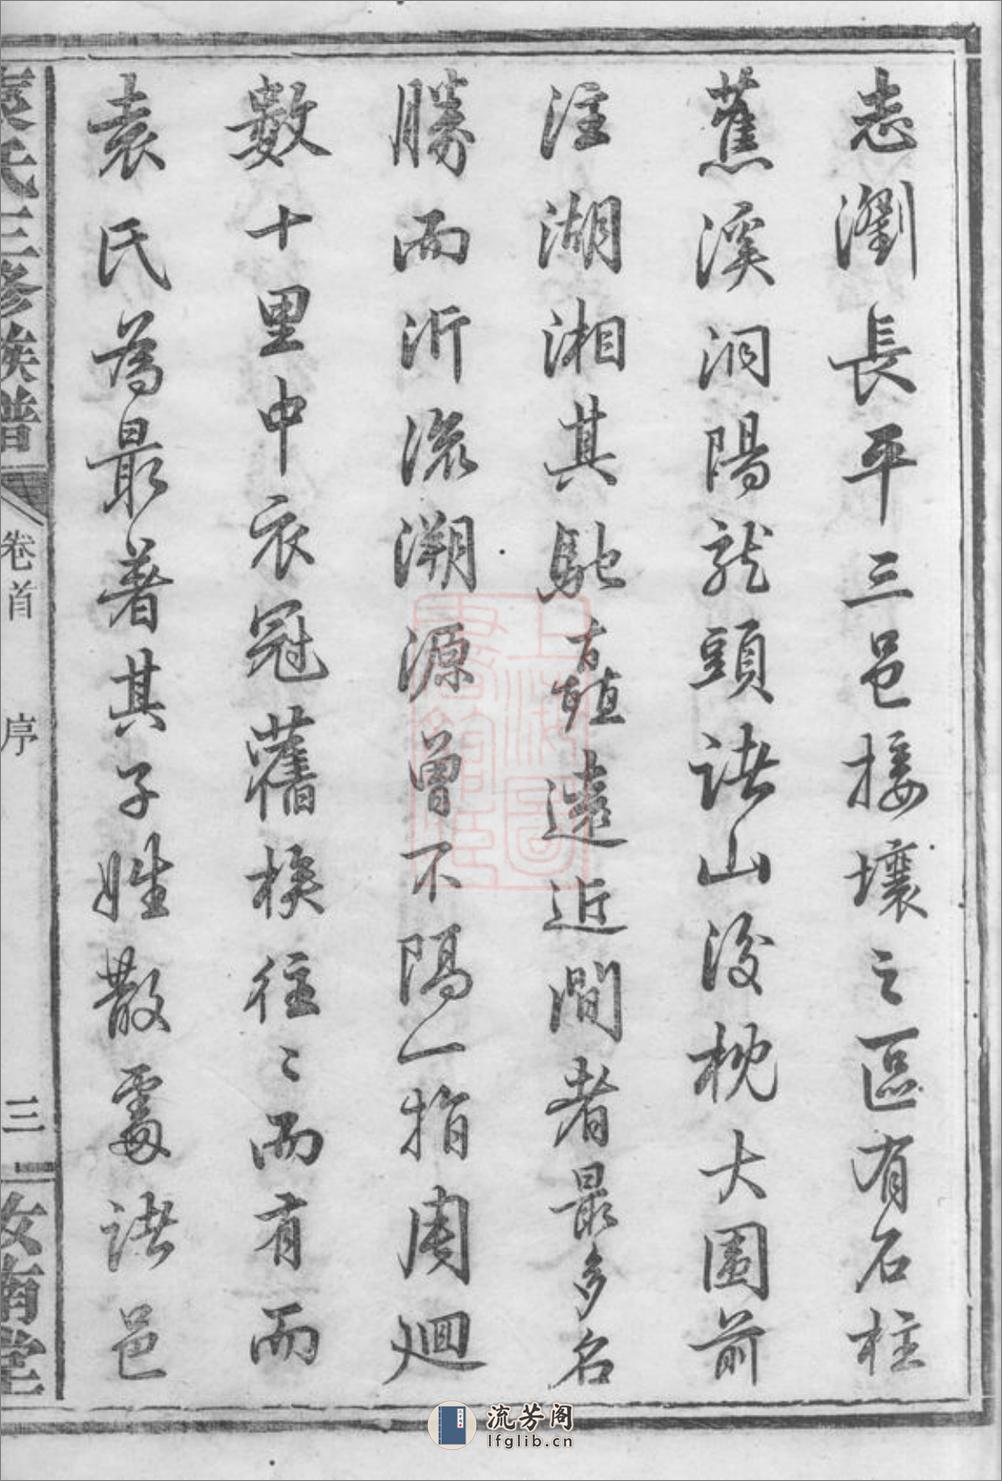 志瀏長平三邑接壤之區有石柱
蕉溪洞陽龍頭諸山後枕大圍前
注湖湘其馳驅遠近間者最多名
勝而沂流溯源曾不隔一指周迴
數十里中衣冠舊族往〻而有而
袁氏為最著其子姓散處諸邑
袁氏三修族譜
卷首
序
三
汝南堂
上海圖書館藏
流芳阁
lfglib.cn